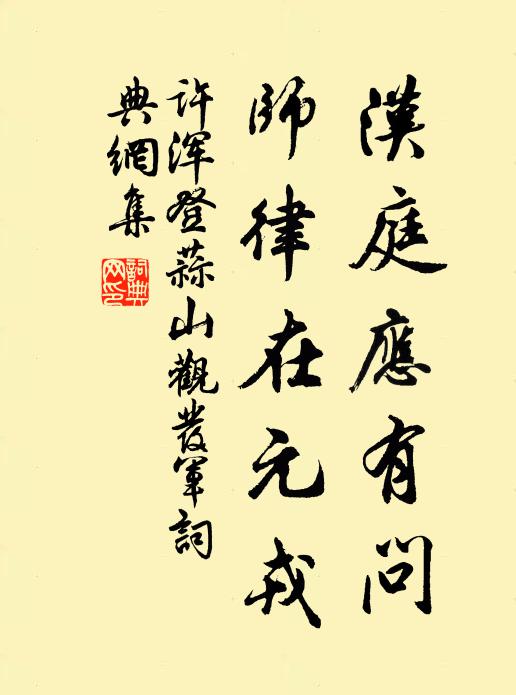 漢庭應有問
師律在元戎
許渾登蒜山觀發軍詞
典網集
詞典網印